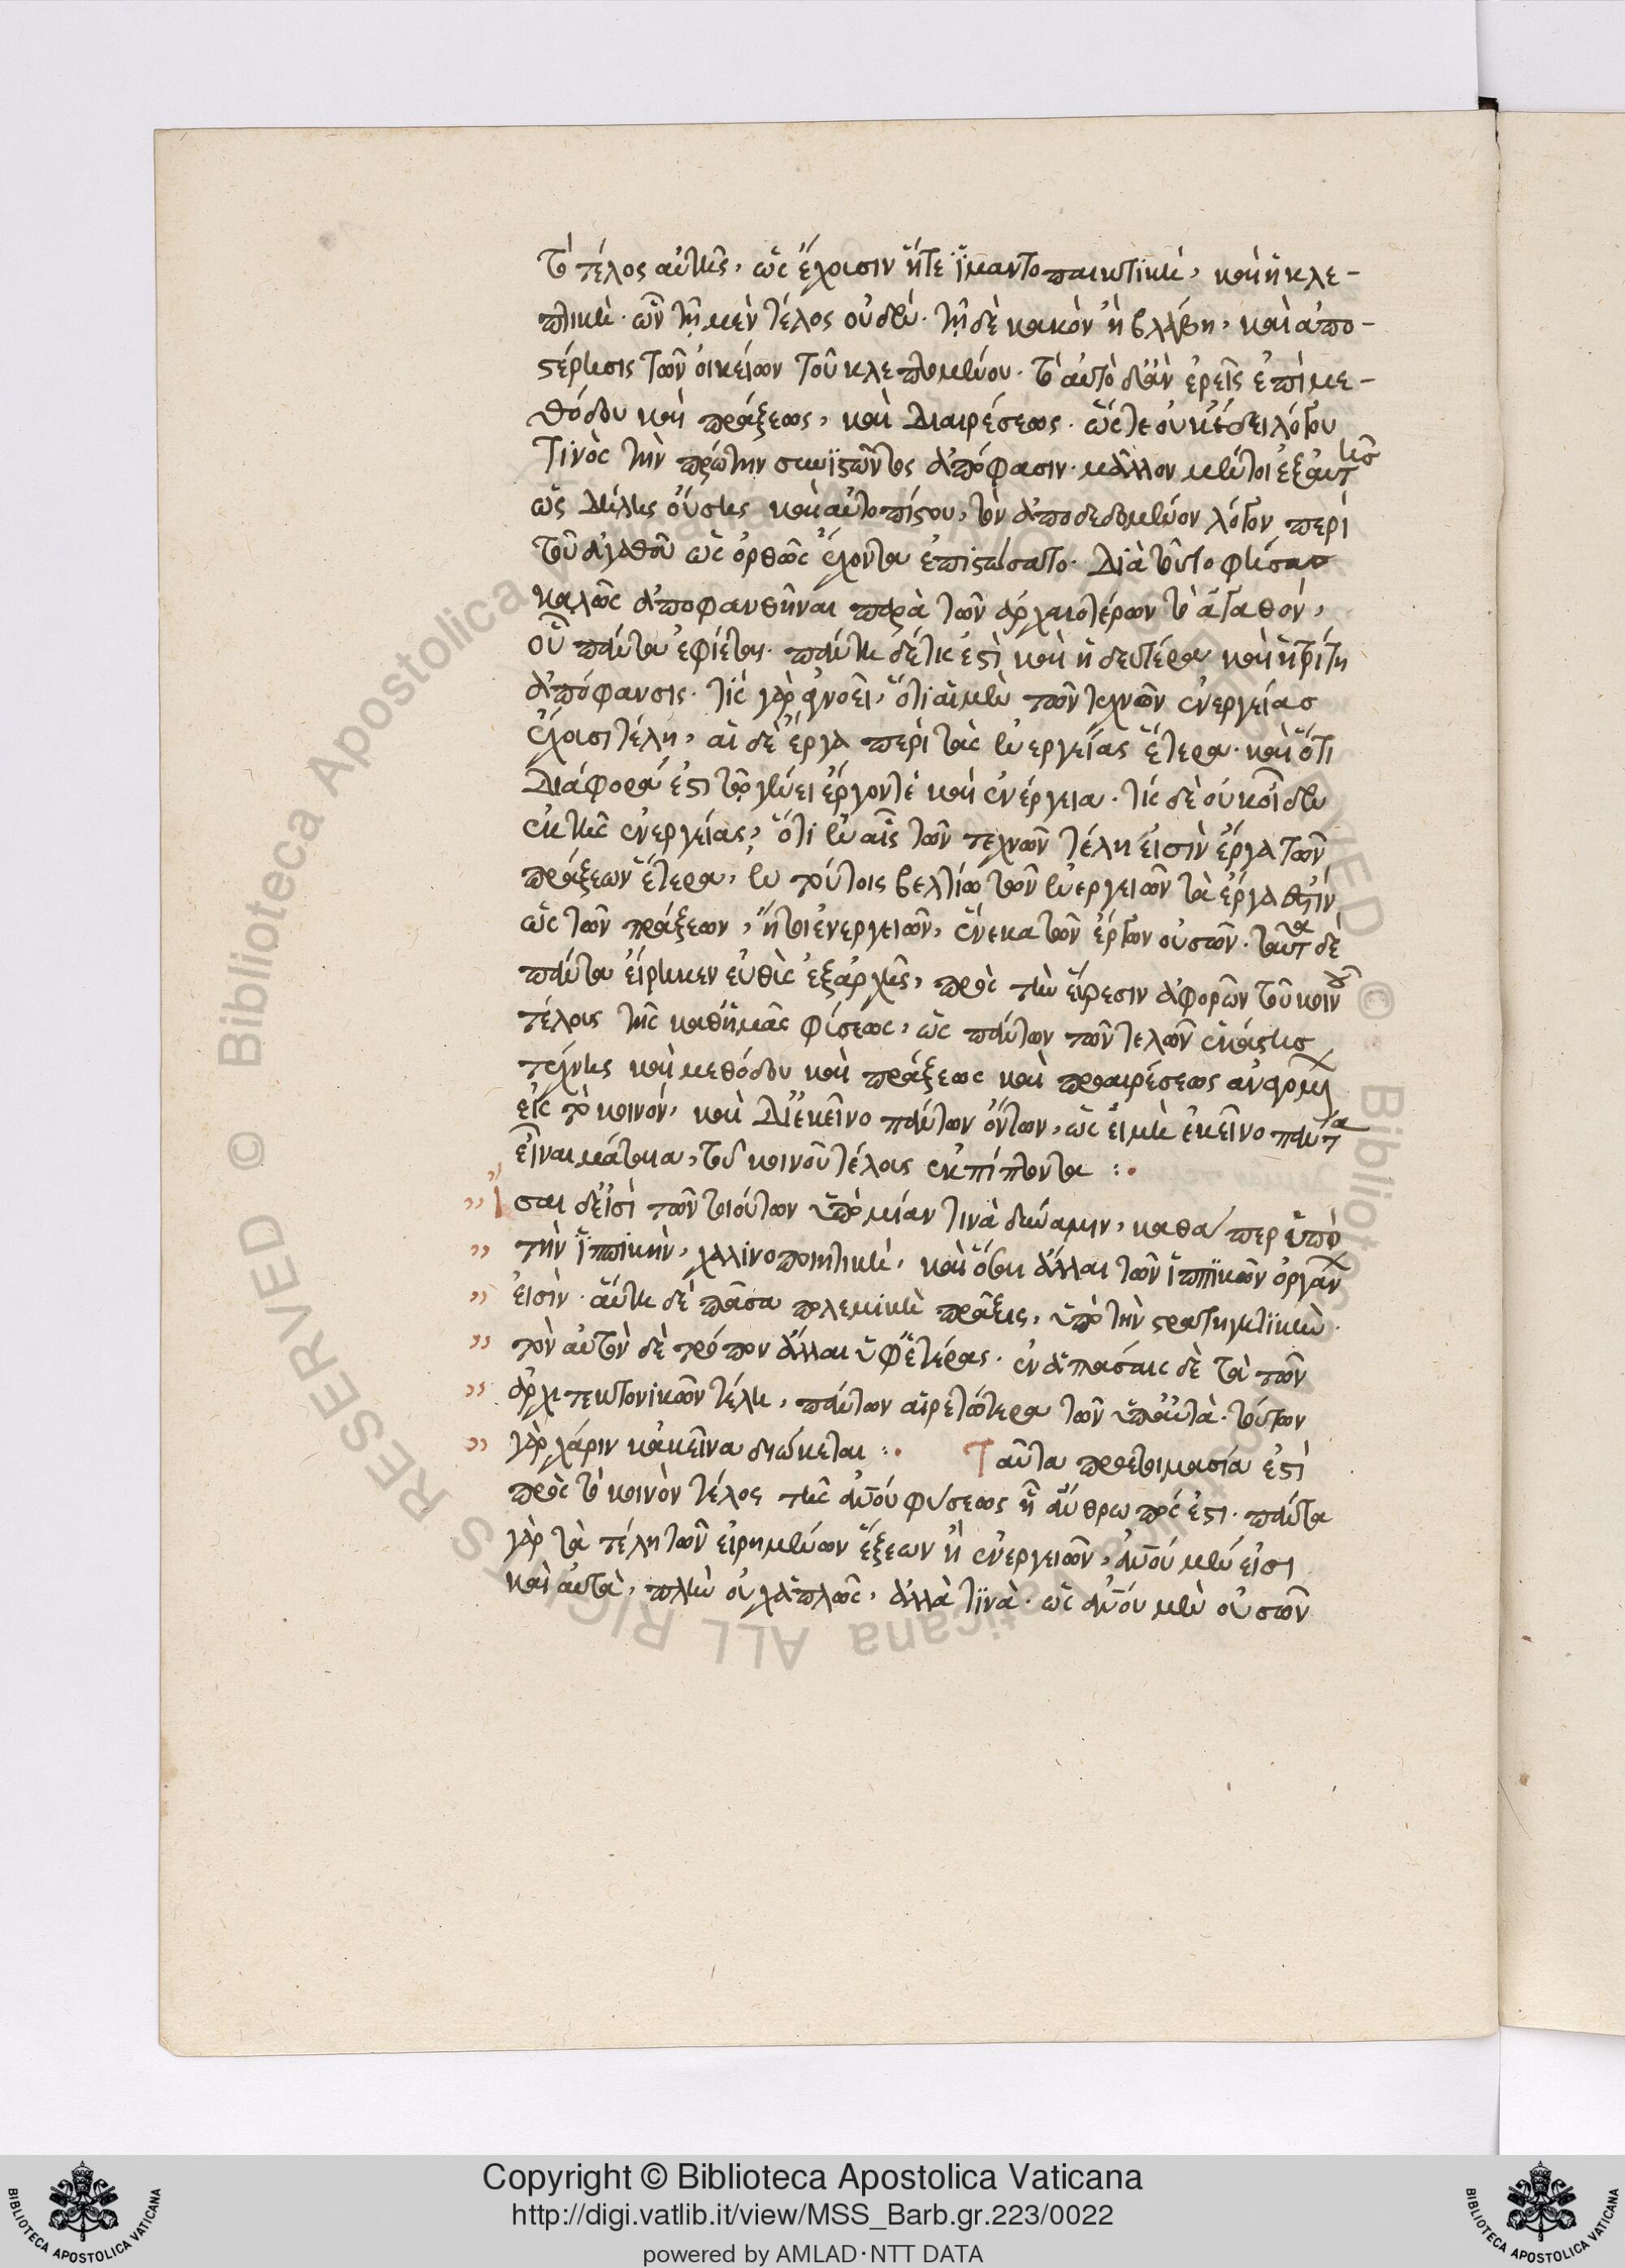 τὸ τέλος αὐτῆς, ὡς ἔχουσιν ἥτε ἱμαντοπαικτικὴ, καὶ ἡ κλε-
πτικὴ. ὧν τῆ μὲν τέλος οὐδέν. τῆ δὲ κακὸν ἡ βλάβη, καὶ ἀπο-
στέρησις τῶν οἰκείων τοῦ κλεπτομένου. τὸ αὐτὸ δ' ἂν ἐρεῖς ἐπὶ με-
θόδου καὶ πράξεως, καὶ διαιρέσεως. ὥστε οὐκέτι δεῖ λόγου
τινὸς τὴν πρώτην συνιστῶντος ἀπόφασιν. μᾶλλον μέντοι ἐξ αὐτῆς
ὡς δήλης οὔσης καὶ αὐτοπίστου, τὸν ἀποδεδομένον λόγον περὶ
τοῦ ἀγαθοῦ ὡς ὀρθῶς ἔχοντα ἐπιστώσατο. διὰ τοῦτο φήσας
καλῶς ἀποφανθῆναι παρὰ τῶν ἀρχαιοτέρων τὸ ἀγαθόν,
οὗ πάντα ἐφίεται. πάντη δέ τις ἐστὶ καὶ ἡ δευτέρα καὶ ἡ τρίτη
ἀπόφανσις. τίς γὰρ ἀγνοεῖ, ὅτι αἱ μὲν τῶν τεχνῶν ἐνεργείας
ἔχουσι τέλη, αἱ δὲ ἔργα περὶ τὰς ἐνεργείας ἕτερα. καὶ ὅτι
διάφορά ἐστι τῷ γένει ἔργον τὲ καὶ ἐνέργεια. τίς δὲ οὐκ οἶδεν
ἐκ τῆς ἐνεργείας, ὅτι ἐν αἷς τῶν τεχνῶν τέλη εἰσὶν ἔργα τῶν
πράξεων ἕτερα, ἐν τούτοις βελτίω τῶν ἐνεργειῶν τὰ ἔργα ἐστίν
ὡς τῶν πράξεων, ἤτοι ἐνεργειῶν, ἕνεκα τῶν ἔργων οὐσῶν. ταῦτα δὲ
πάντα εἴρηκεν εὐθὺς ἐξαρχῆς, πρὸς τὴν εὕρεσιν ἀφορῶν τοῦ κοινοῦ
τέλους τῆς καθ' ἡμᾶς φύσεως, ὡς πάντων τῶν τελῶν ἑκάστης
τέχνης καὶ μεθόδου καὶ πράξεως καὶ προαιρέσεως ἀναφομέν
εἰς τὸ κοινόν, καὶ δι' ἐκεῖνο πάντων ὄντων, ὡς εἰ μὴ ἐκεῖνο πάντα
εἶναι μάταια, τοῦ κοινοῦ τέλους ἐκπίπτοντα :·
" ὅσαι δ' εἰσὶ τῶν τοιούτων ὑπὸ μίαν τινὰ δύναμιν, καθάπερ ὑπὸ
" τὴν ἱππικὴν, χαλινοποιητικὴ, καὶ ὅσαι ἄλλαι τῶν ἱππικῶν ὀργάνων
" εἰσίν. αὕτη δὲ πᾶσα πολεμικὴ πρᾶξις, ὑπὸ τὴν στρατηγητικήν.
" τὸν αὐτὸν δὲ τρόπον ἄλλαι ὑφ' ἑτέρας. ἐν ἁπάσαις δὲ τὰ τῶν
" ἀρχιτεκτονικῶν τέλη, πάντων αἱρετώτερα τῶν ὑπ' αὐτὰ. τούτων
" γὰρ χάριν κἀκεῖνα διώκεται :· Ταῦτα προετοιμασία ἐστὶ
πρὸς τὸ κοινὸν τέλος τῆς ἀνου φύσεως ἧ ἄνθρωπός ἐστι. πάντα
γὰρ τὰ τέλη τῶν εἰρημένων ἕξεων ἢ ἐνεργειῶν, ἀνου μέν εἰσι
καὶ αὐτὰ, πλὴν οὐχ ἁπλῶς, ἀλλὰ τινὰ. ὡς ἀνου μὲν οὐσῶν
© Biblioteca Apostolica Vaticana ALL RIGHTS RESERVED
Copyright © Biblioteca Apostolica Vaticana
http://digi.vatlib.it/view/MSS_Barb.gr.223/0022
powered by AMLAD·NTT DATA
BIBLIOTECA APOSTOLICA VATICANA
BIBLIOTECA APOSTOLICA VATICANA